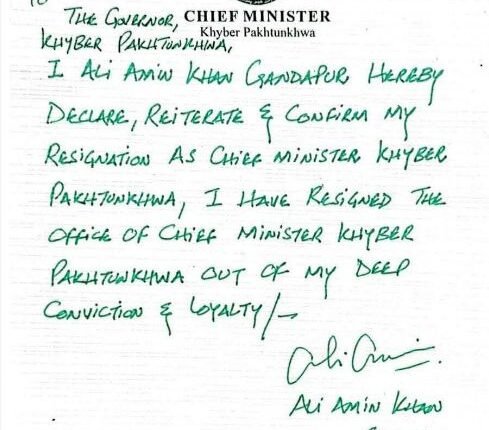 To
The Governor,
CHIEF MINISTER
Khyber Pakhtunkhwa
KHYBER PAKHTUNKHWA,
I ALI AMIN KHAN GANDAPUR HEREBY
DECLARE, REITERATE & CONFIRM MY
RESIGNATION AS CHIEF MINISTER KHYBER
PAKHTUNKHWA, I HAVE RESIGNED THE
OFFICE OF CHIEF MINISTER KHYBER
PAKHTUNKHWA OUT OF MY DEEP
CONVICTION & LOYALTY/-
ALI AMIN KHAN